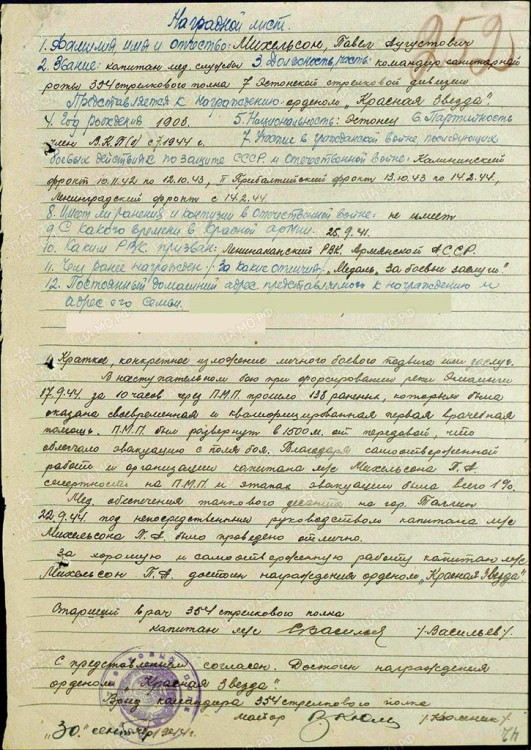 252
Наградной лист.
1. Фамилия имя и отчество: Михельсон, Павел Аугустович
2. Звание: капитан мед. службы 3 Должность, часть: командир санитарной
роты 354 стрелкового полка 7 Эстонской стрелковой дивизии
Представляется к награждению орденом „Красная Звезда".
4. Год рождения 1903. 5 Национальность: Эстонец 6. Партийность
член В.К.П(б) с 1944 г. 7. Участие в гражданской войне, последующих
боевых действиях по защите СССР и отечественной войне: Калининский
фронт 10.11.42 по 12.10.43, II Прибалтийский фронт 13.10.43 по 14.2.44,
Ленинградский фронт с 14.2.44.
8. Имеет ли ранения и контузии в отечественной войне: не имеет
9. С какого времени в Красной армии. 25.9.41.
10. Каким РВК призван: Ленинаканский РВК. Армянской АССР.
11. Чем ранее награжден: / За какие отличия: „Медаль, За боевые заслуги."
12. Постоянный домашний адрес представляемого к награждению и
адрес его семьи.
Краткое, конкретное изложение личного боевого подвига или заслуг.
В наступательном бою при форсировании реки Эмайыги
17.9.44 за 10 часов через П.М.П прошло 138 раненых, которым была
оказана своевременная и квалифицированная первая врачебная
помощь. П.М.П. был развернут в 1500 м. от передовой, что
облегчало эвакуацию с поля боя. Благодаря самоотверженной
работы и организации капитана м/с Михельсона П.А.
смертность на П.М.П и этапах эвакуации была всего 1%.
Мед. обеспечения танкового десанта на гор. Таллин
22.9.44 под непосредственным руководством капитана м/с
Михельсона П.А. было проведено отлично.
За хорошую и самоотверженную работу капитан м/с
Михельсон П.А. достоин награждения орденом „Красная Звезда"
Старший врач 354 стрелкового полка
капитан м/с /Васильев/.
С представлением согласен. Достоин награждения
орденом „Красная Звезда".
Врид командира 354 стрелкового полка
майор
„30." сентября 1944 г.